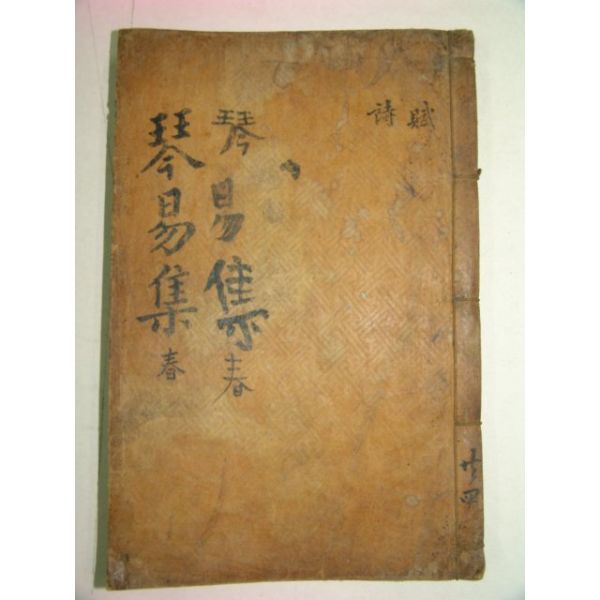 賦
詩
琴易集 春
琴易集 春
共四